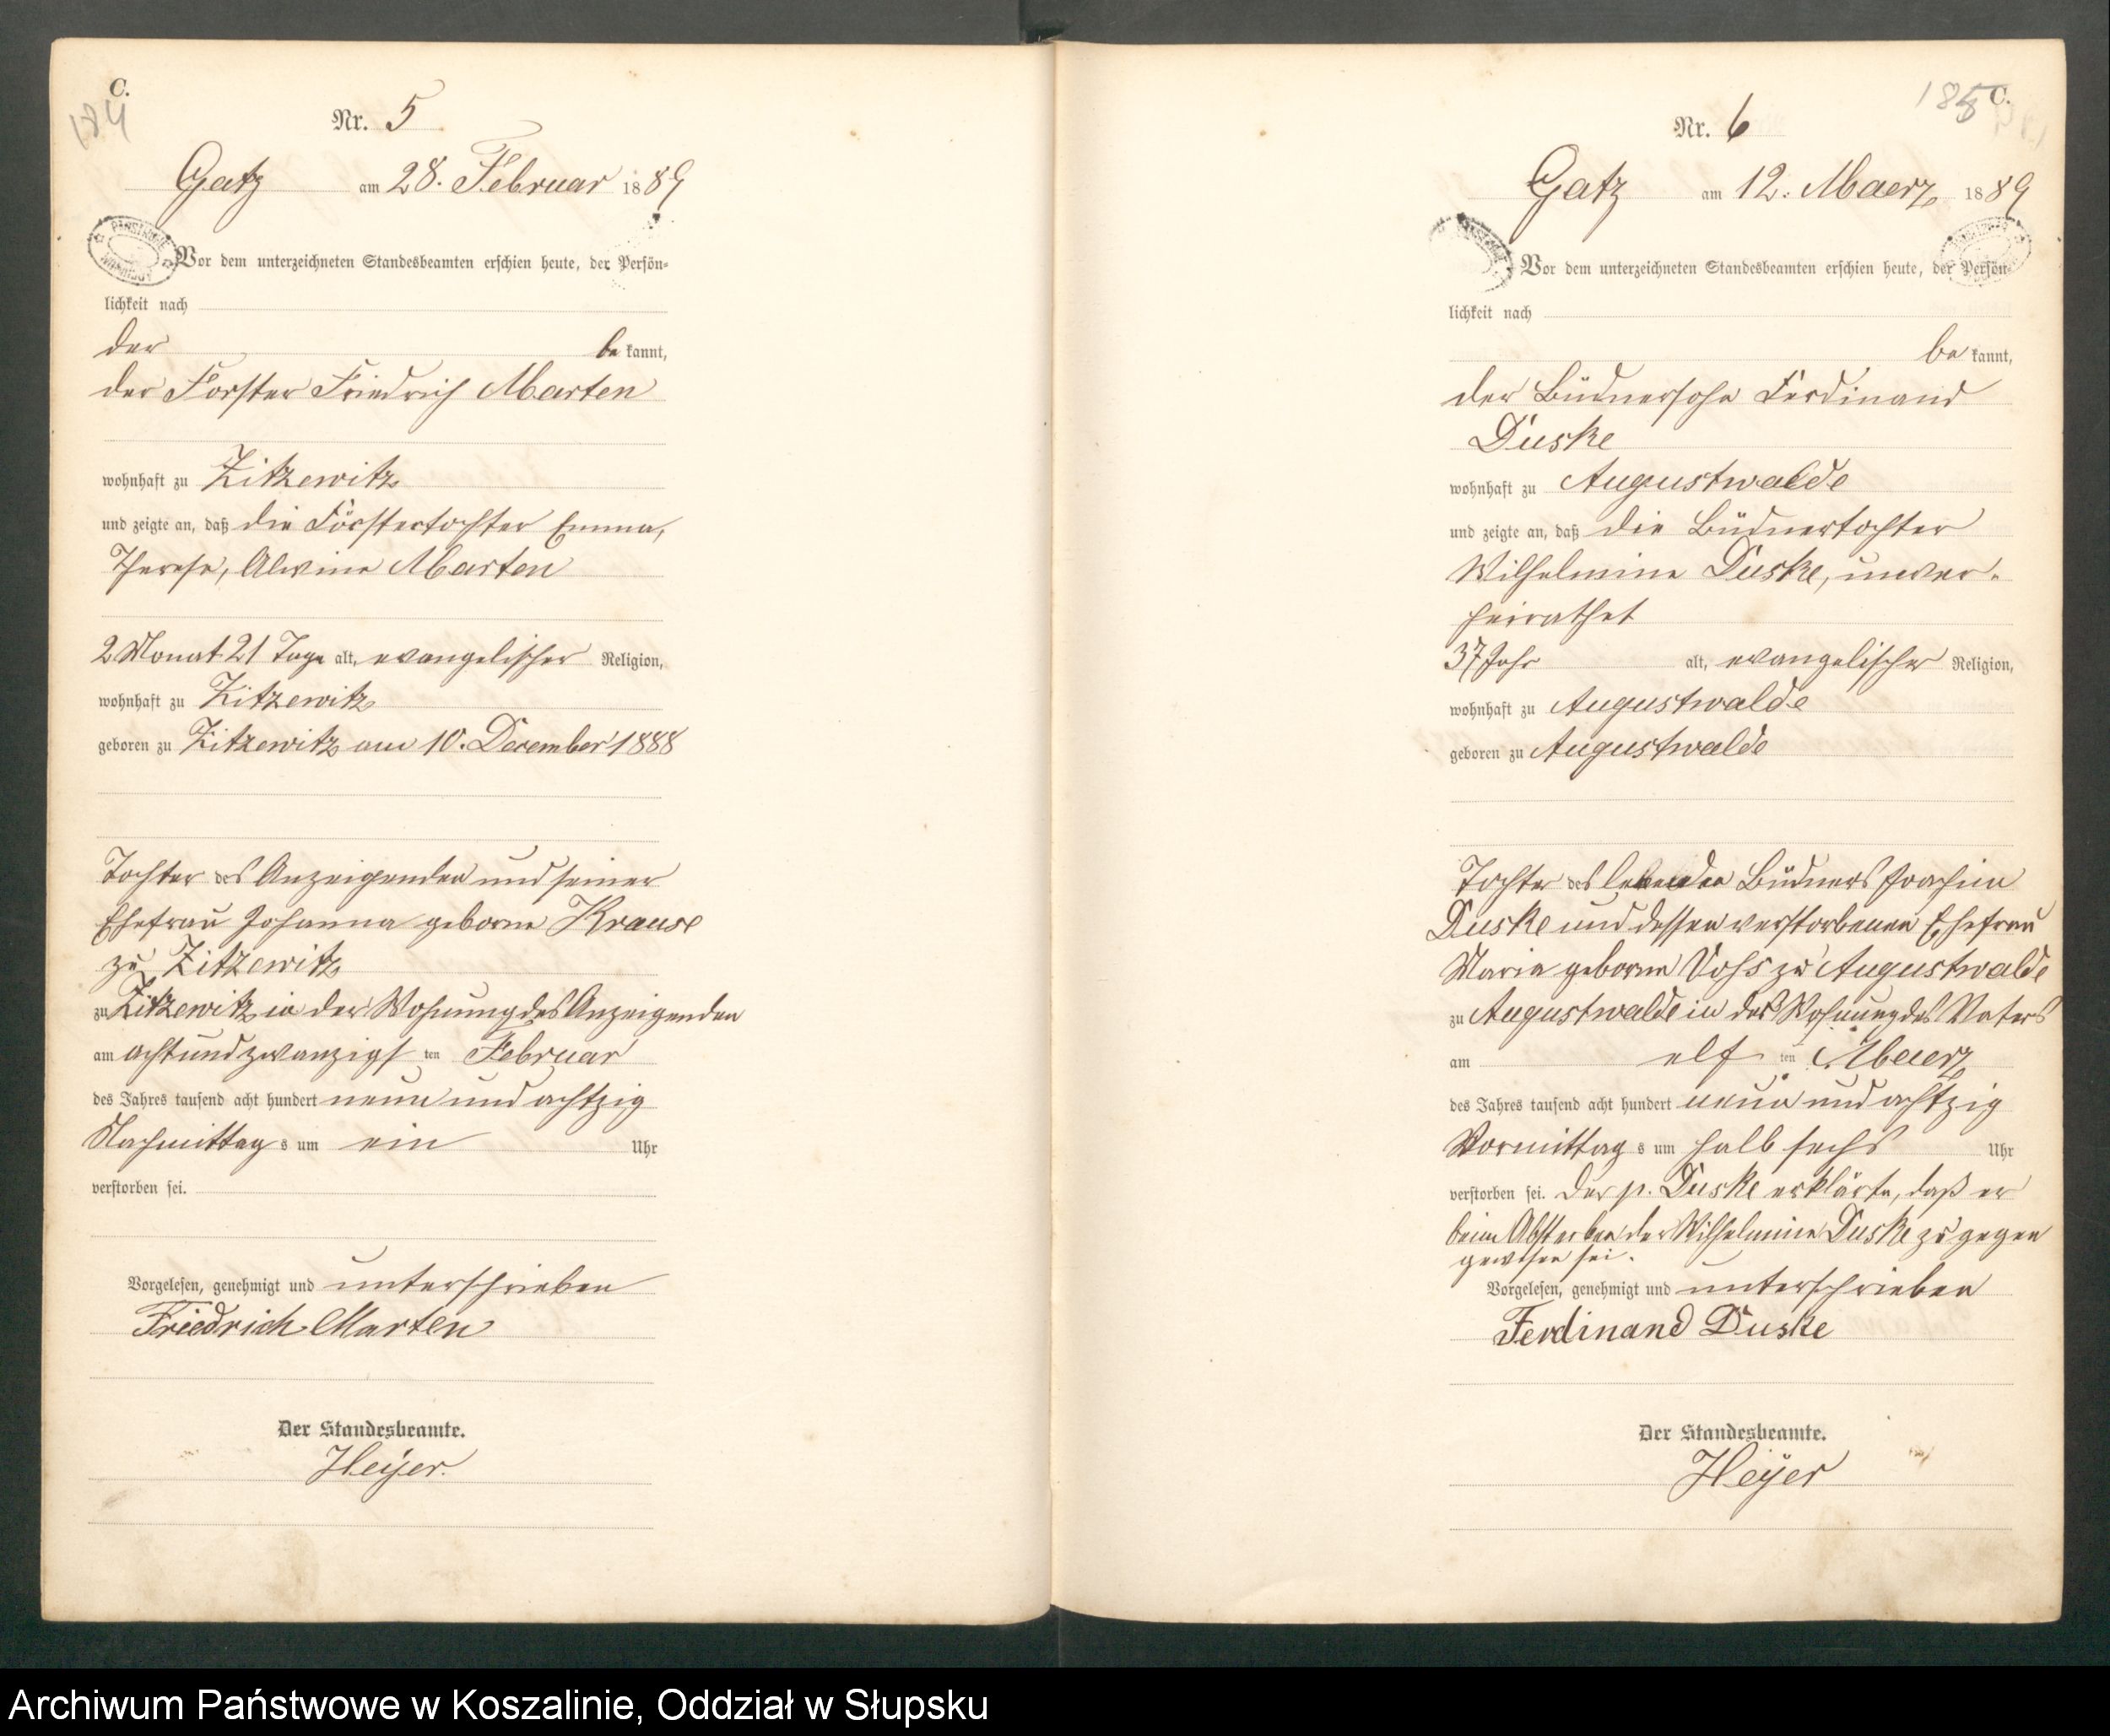 C.
184
Nr. 5
Gatz am 28. Februar 1889
Vor dem unterzeichneten Standesbeamten erschien heute, der Persön=
lichkeit nach
der be kannt,
der Förster Friedrich Marten
wohnhaft zu Zitzewitz
und zeigte an, daß die Förstertochter Emma,
Therese, Alwine Marten
2 Monat 21 Tage alt, evangelischer Religion,
wohnhaft zu Zitzewitz
geboren zu Zitzewitz am 10. December 1888
Tochter des Anzeigenden und seiner
Ehefrau Johanna geborne Krause
zu Zitzewitz
zu Zitzewitz in der Wohnung des Anzeigenden
am achtundzwanzigs ten Februar
des Jahres tausend acht hundert neun und achtzig
Nachmittag s um ein Uhr
verstorben sei.
Vorgelesen, genehmigt und unterschrieben
Friedrich Marten
Der Standesbeamte.
Heyer.
185 C.
Nr. 6
Gatz am 12. Maerz 1889
Vor dem unterzeichneten Standesbeamten erschien heute, der Persön=
lichkeit nach
be kannt,
der Büdnersohn Ferdinand
Duske
wohnhaft zu Augustwalde
und zeigte an, daß die Büdnertochter
Wilhelmine Duske, unver-
heirathet
37 Jahr alt, evangelischer Religion,
wohnhaft zu Augustwalde
geboren zu Augustwalde
Tochter des lebenden Büdners Joachim
Duske und dessen verstorbenen Ehefrau
Maria geborne Voss zu Augustwalde
zu Augustwalde in der Wohnung des Vaters
am elf ten Maerz
des Jahres tausend acht hundert neun und achtzig
Vormittag s um halb sechs Uhr
verstorben sei. Der p. Duske erklärte, daß er
beim Absterben der Wilhelmine Duske zu gegen
gewesen sei.
Vorgelesen, genehmigt und unterschrieben
Ferdinand Duske
Der Standesbeamte.
Heyer
Archiwum Państwowe w Koszalinie, Oddział w Słupsku